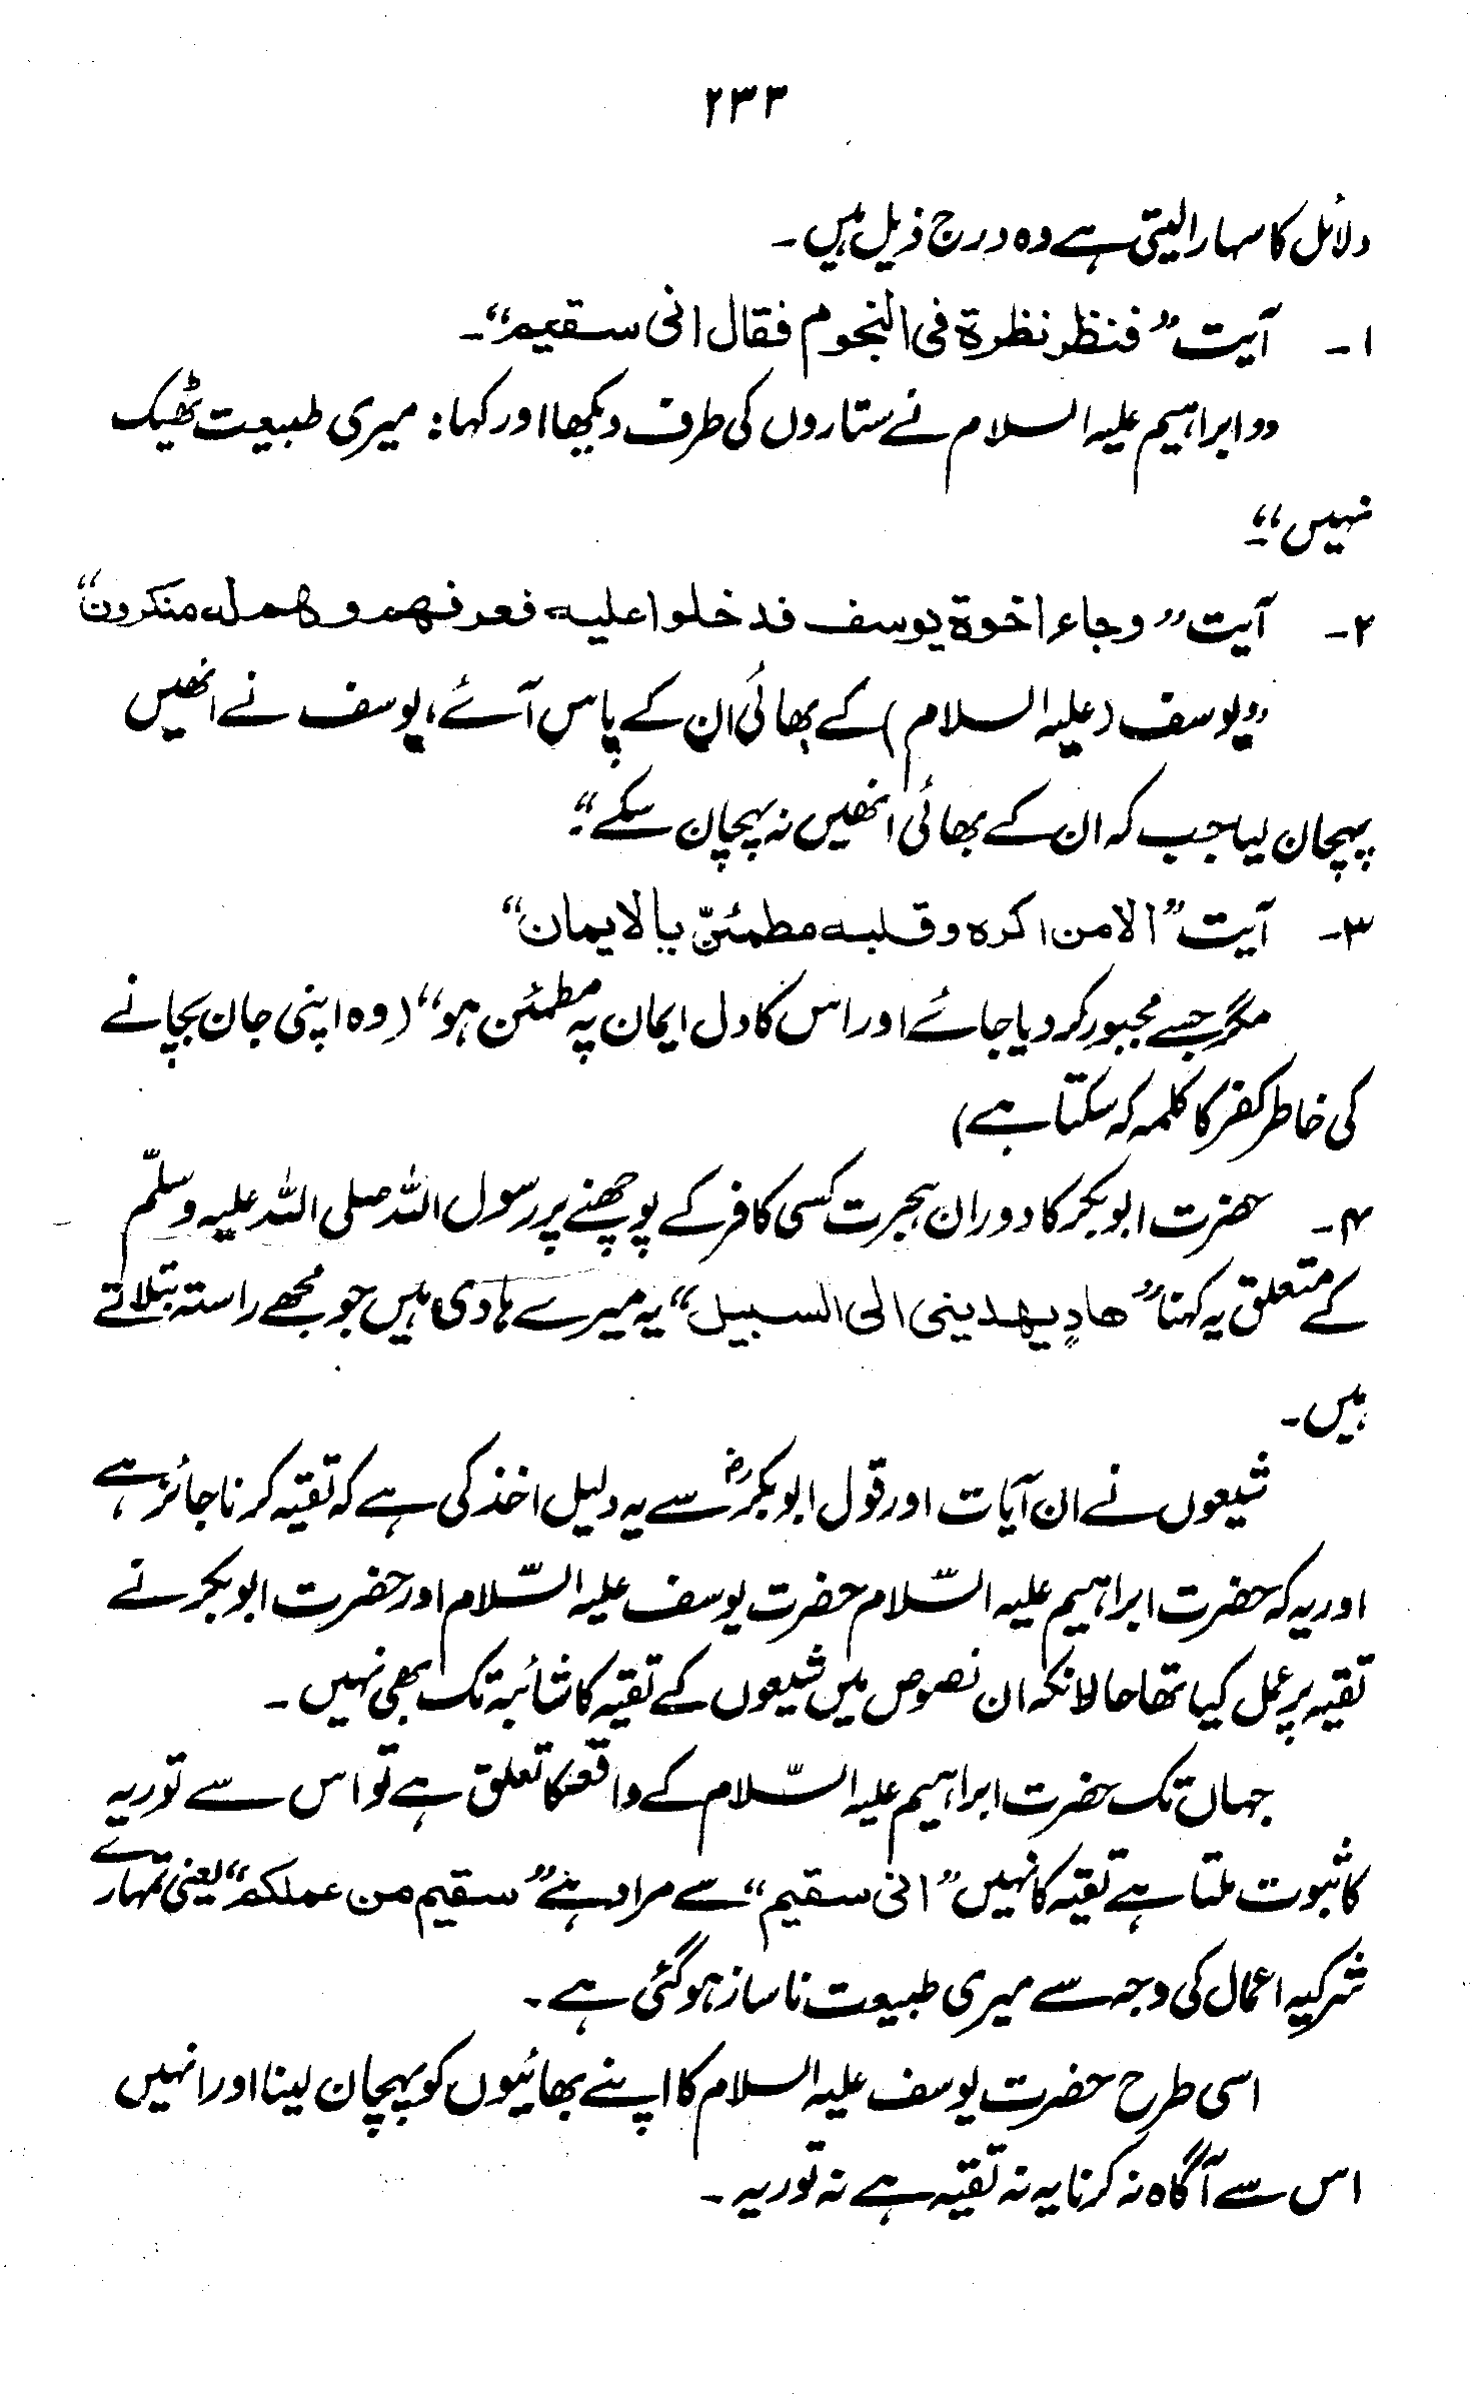 ۲۳۳
دلائل کا سہارا لیتی ہے وہ درج ذیل ہیں۔
۱۔ آیت ”فنظر نظرة فی النجوم فقال انی سقیم“۔
”ابراہیم علیہ السلام نے ستاروں کی طرف دیکھا اور کہا: میری طبیعت ٹھیک
نہیں“۔
۲۔ آیت ”وجاء اخوة یوسف فدخلوا علیہ فعرفھم وھم لہ منکرون“
”یوسف (علیہ السلام) کے بھائی ان کے پاس آئے، یوسف نے انھیں
پہچان لیا جب کہ ان کے بھائی انھیں نہ پہچان سکے“۔
۳۔ آیت ”الا من اکرہ وقلبہ مطمئنّ بالایمان“
مگر جسے مجبور کر دیا جائے اور اس کا دل ایمان پہ مطمئن ہو“ (وہ اپنی جان بچانے
کی خاطر کفر کا کلمہ کہ سکتا ہے)
۴۔ حضرت ابوبکر کا دوران ہجرت کسی کافر کے پوچھنے پر رسول اللہ صلی اللہ علیہ وسلّم
کے متعلق یہ کہنا ”ھادٍ یھدینی الی السبیل“ یہ میرے ہادی ہیں جو مجھے راستہ بتلاتے
ہیں۔
شیعوں نے ان آیات اور قول ابوبکرؓ سے یہ دلیل اخذ کی ہے کہ تقیہ کرنا جائز ہے
اور یہ کہ حضرت ابراہیم علیہ السّلام حضرت یوسف علیہ السّلام اور حضرت ابوبکر نے
تقیہ پر عمل کیا تھا حالانکہ ان نصوص میں شیعوں کے تقیہ کا شائبہ تک بھی نہیں۔
جہاں تک حضرت ابراہیم علیہ السّلام کے واقعہ کا تعلق ہے تو اس سے توریہ
کا ثبوت ملتا ہے تقیہ کا نہیں ”انی سقیم“ سے مراد ہے ”سقیم من عملکم“ یعنی تمہارے
شرکیہ اعمال کی وجہ سے میری طبیعت ناساز ہو گئی ہے۔
اسی طرح حضرت یوسف علیہ السلام کا اپنے بھائیوں کو پہچان لینا اور انہیں
اس سے آگاہ نہ کرنا یہ نہ تقیہ ہے نہ توریہ۔